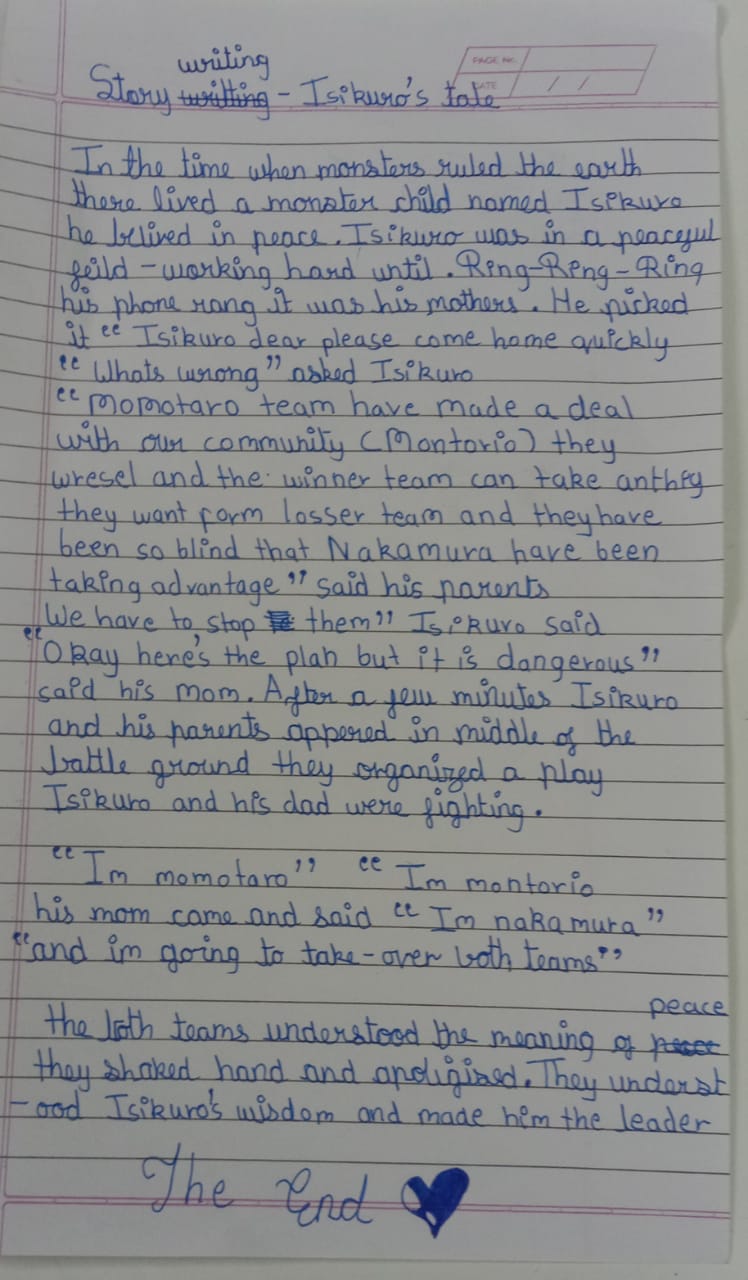 PAGE NO.
DATE / /
writing
Story writting - Isikuro's tale
In the time when monsters ruled the earth
there lived a monster child named Isikuro
he belived in peace. Isikuro was in a peaceful
feild - working hard until. Ring-Ring-Ring
his phone rang it was his mothers. He picked
it “ Isikuro dear please come home quickly
“ Whats wrong” asked Isikuro
“ momotaro team have made a deal
with our community (Montorio) they
wresel and the winner team can take anthig
they want form losser team and they have
been so blind that Nakamura have been
taking advantage” said his parents
We have to stop them” Isikuro said
“Okay here's the plan but it is dangerous”
said his mom. After a few minutes Isikuro
and his parents appered in middle of the
battle ground they organized a play
Isikuro and his dad were fighting.
“Im momotaro” “ Im montorio
his mom came and said “ Im nakamura”
“and im going to take-over both teams”
peace
the both teams understood the meaning of
they shaked hand and apoligized. They underst
-ood Isikuro's wisdom and made him the leader
The End